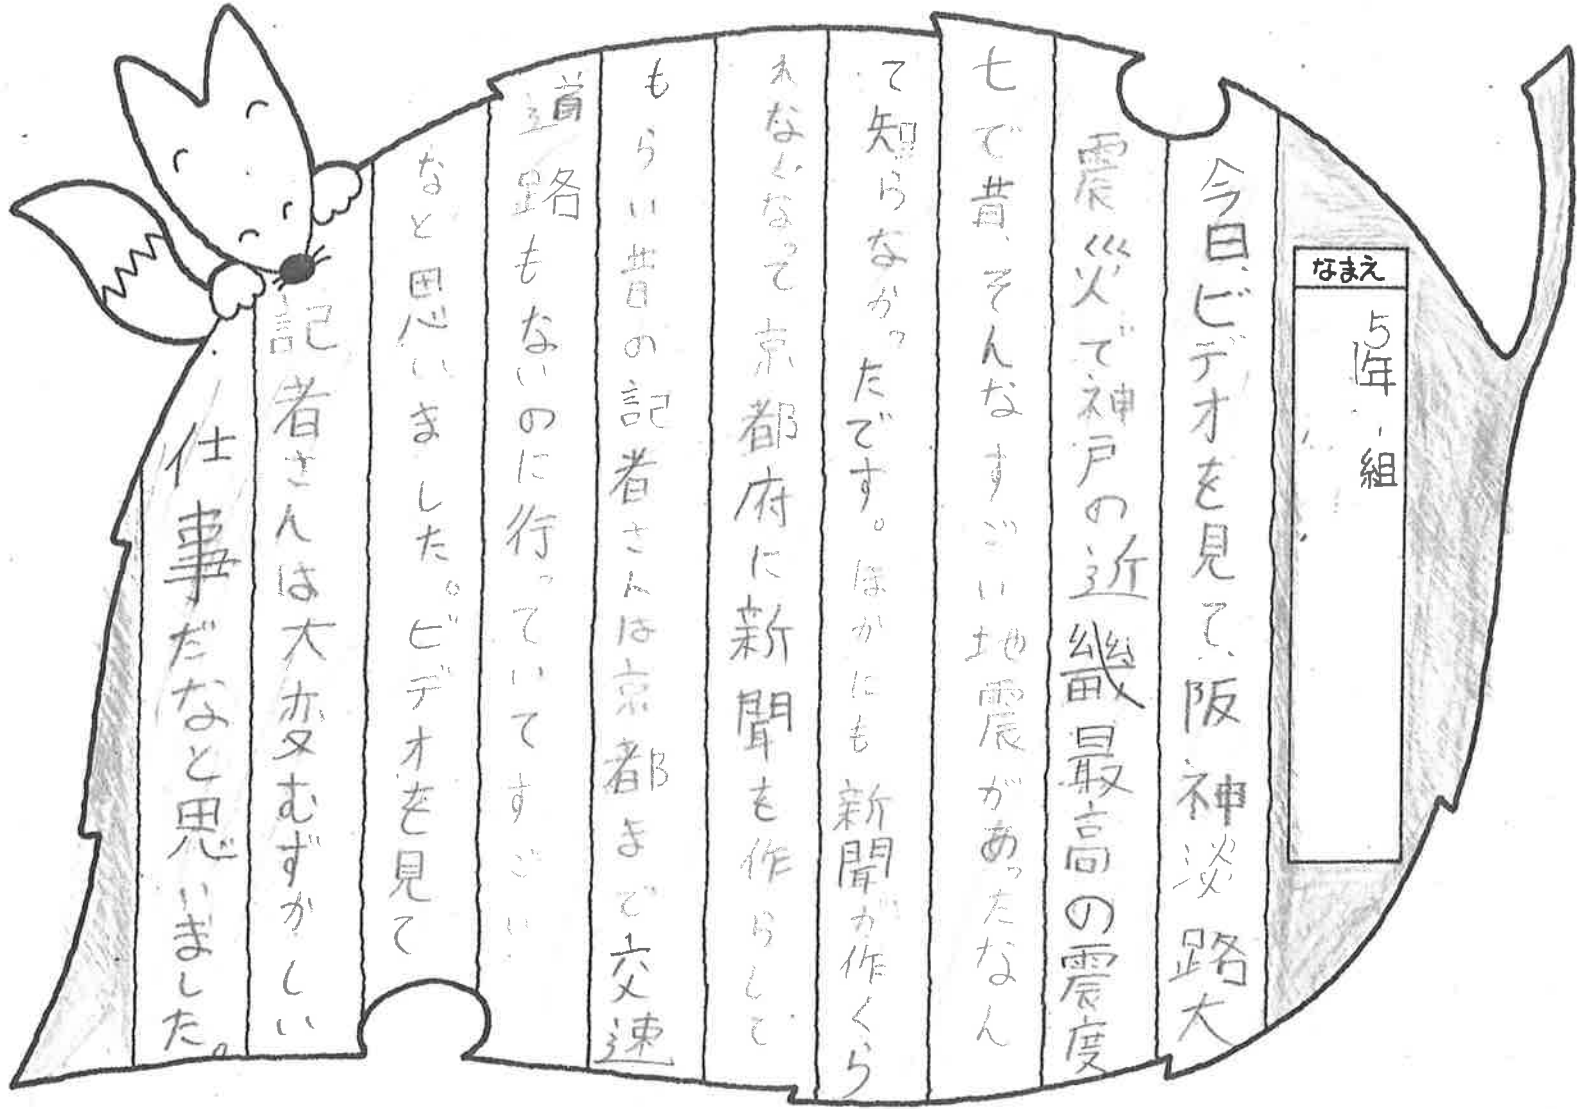 なまえ
5年 組
今日、ビデオを見て、阪神淡路大
震災で神戸の近畿最高の震度
七で昔、そんなすごい地震があったなん
て知らなかったです。ほかにも新聞が作くら
れなくなって京都府に新聞を作らして
もらい昔の記者さんは京都まで交速
道路もないのに行っていてすごい
なと思いました。ビデオを見て
記者さんは大変むずかしい
仕事だなと思いました。